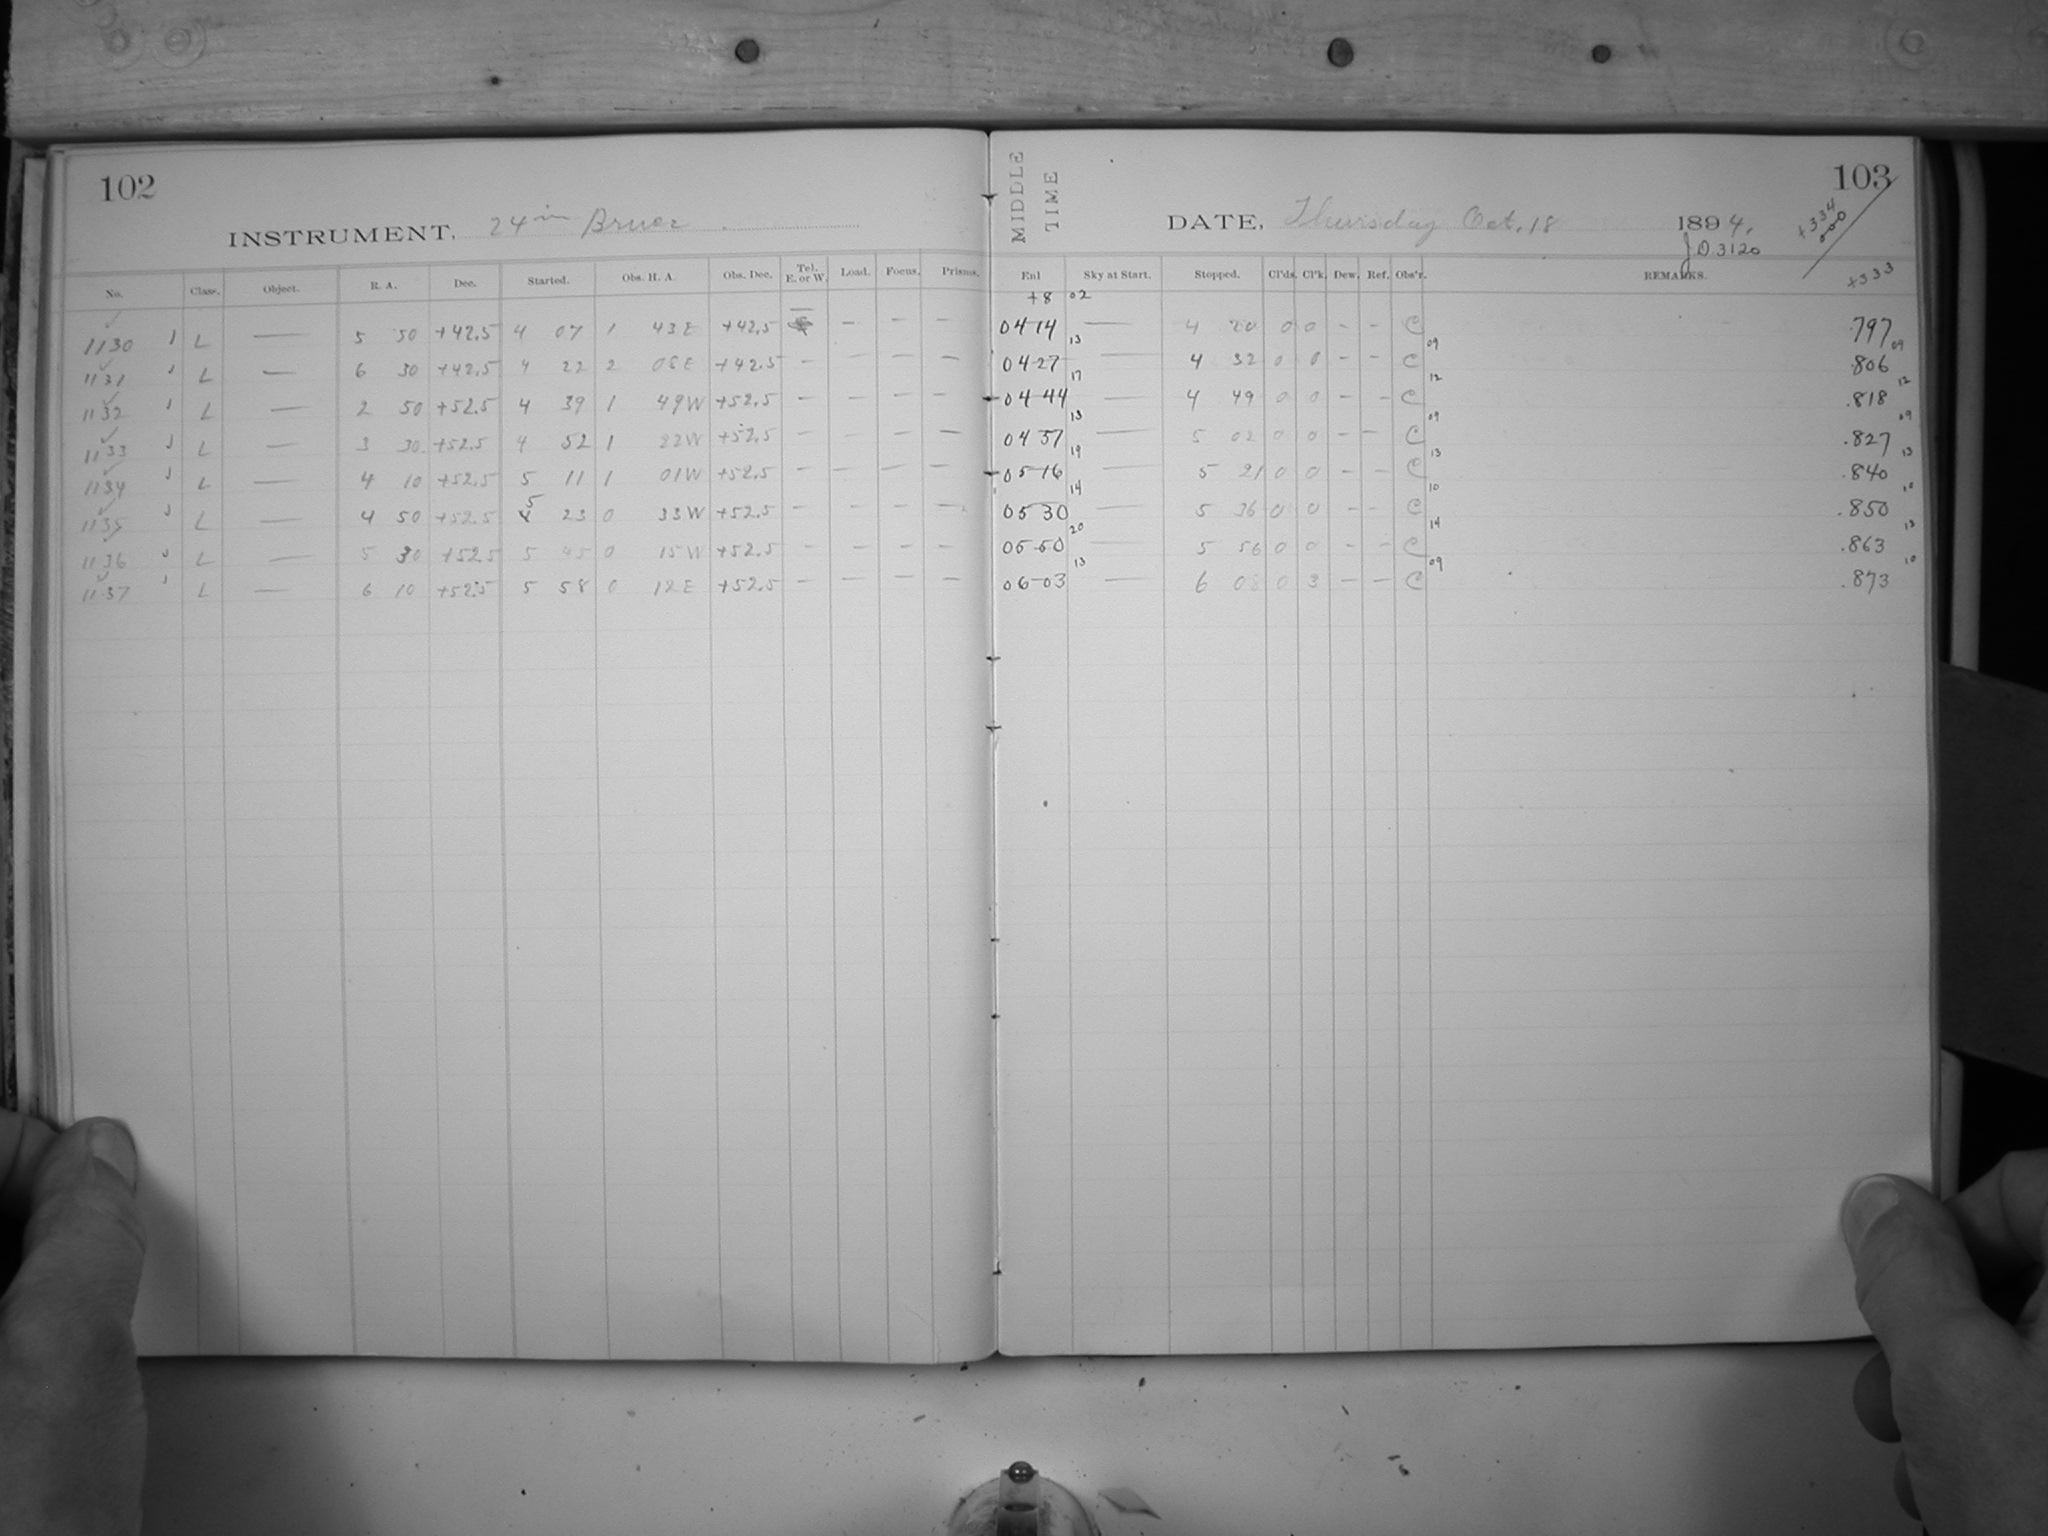 102
INSTRUMENT, 24 in Bruce
No. Class. Object. R. A. Dec. Started. Obs. H. A. Obs. Dec. Tel. E. or W. Load. Focus. Prisms.
1130 L — 5 50 +42.5 4 07 1 43E +42.5 — — —
1131 L — 6 30 +42.5 4 22 2 08E +42.5 — — — —
1132 L — 2 50 +52.5 4 39 1 49W +52.5 — — — —
1133 L — 3 30 +52.5 4 52 1 22W +52.5 — — — —
1134 L — 4 10 +52.5 5 11 1 01W +52.5 — — — —
1135 L — 4 50 +52.5 5 23 0 33W +52.5 — — — —
1136 L — 5 30 +52.5 5 45 0 15W +52.5 — — — —
1137 L — 6 10 +52.5 5 58 0 12E +52.5 — — — —
MIDDLE TIME
103
DATE, Thursday Oct. 18 1894.
JD 3120
+334
000
Enl Sky at Start. Stopped. Cl'ds. Cl'k. Dew. Ref. Obs'r. REMARKS. +333
+8 02
04 14 — 4 20 0 0 – – C .797
13 09 09
04 27 — 4 32 0 0 – – C .806
17 12 12
04 44 — 4 49 0 0 – – C .818
13 09 09
04 57 — 5 02 0 0 – – C .827
19 13 13
05 16 — 5 21 0 0 – – C .840
14 10 10
05 30 — 5 36 0 0 – – C .850
20 14 13
05 50 — 5 56 0 0 – – C .863
13 09 10
06 03 — 6 08 0 3 – – C .873